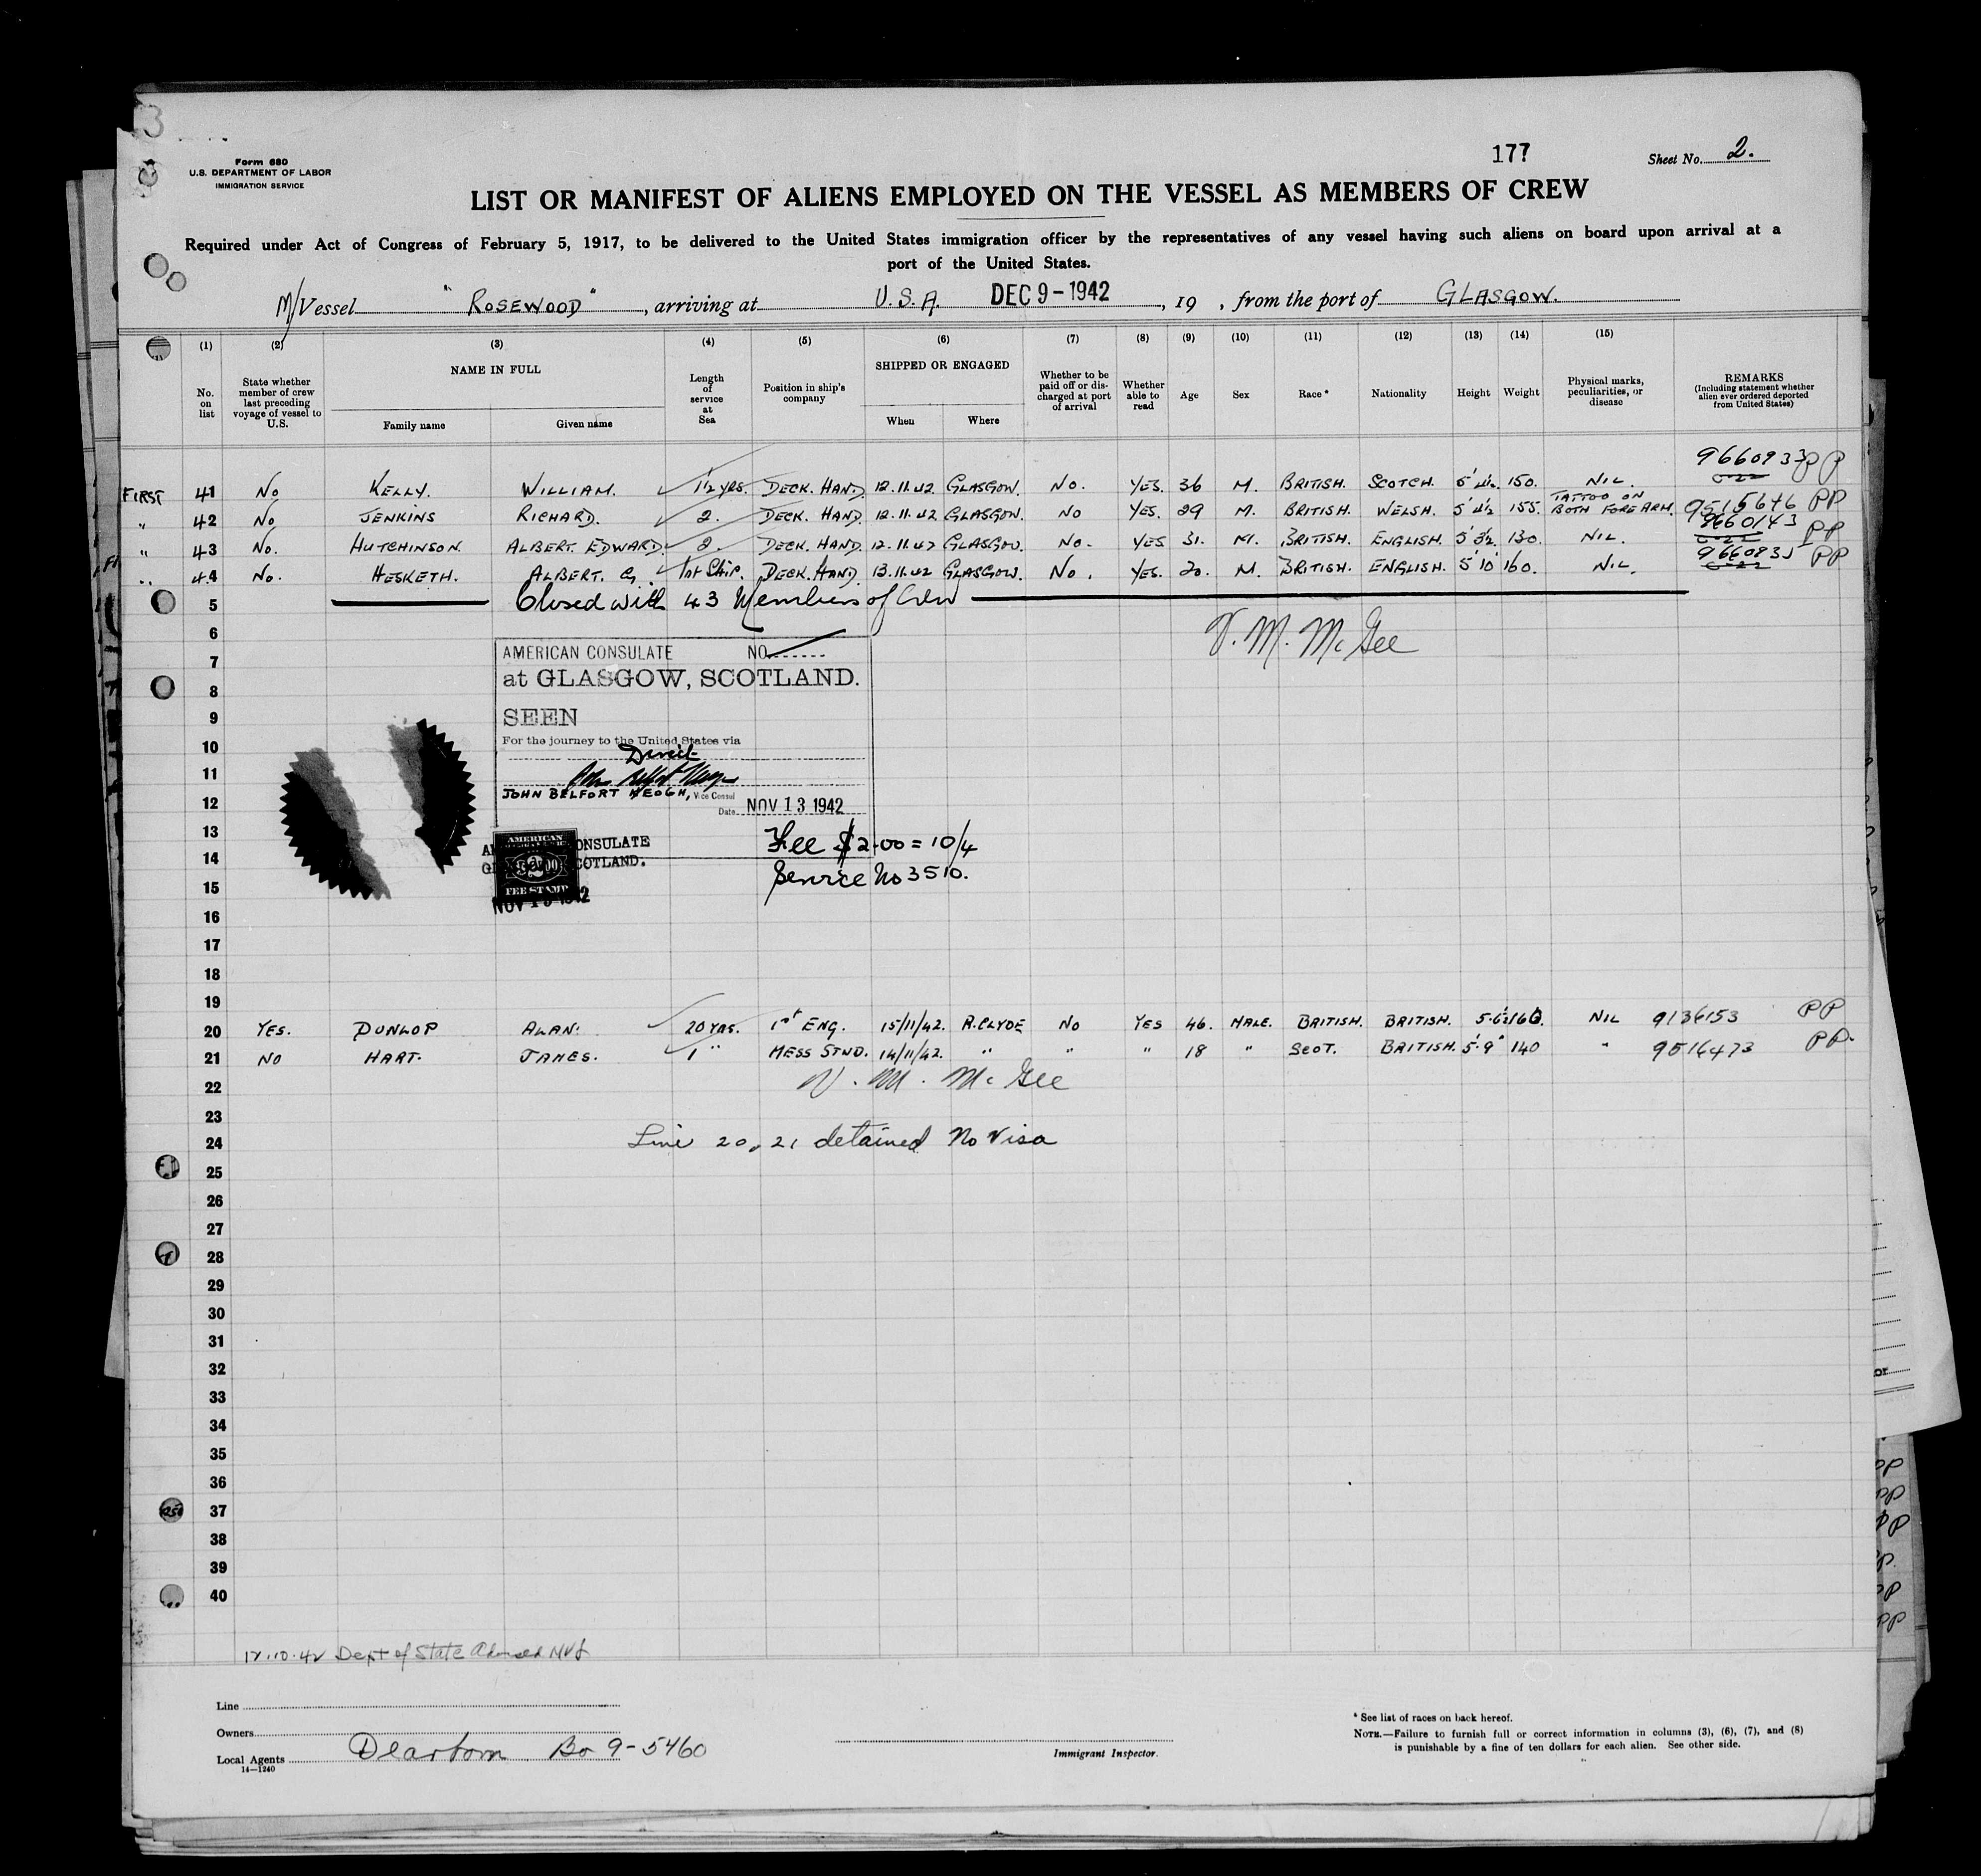 Form 680
U.S. DEPARTMENT OF LABOR
IMMIGRATION SERVICE
177
Sheet No. 2.
LIST OR MANIFEST OF ALIENS EMPLOYED ON THE VESSEL AS MEMBERS OF CREW
Required under Act of Congress of February 5, 1917, to be delivered to the United States immigration officer by the representatives of any vessel having such aliens on board upon arrival at a
port of the United States.
M/Vessel "ROSEWOOD", arriving at U.S.A. DEC 9-1942, 19 , from the port of GLASGOW.
(1) (2) (3) (4) (5) (6) (7) (8) (9) (10) (11) (12) (13) (14) (15)
No. on list
State whether member of crew last preceding voyage of vessel to U.S.
NAME IN FULL
Family name
Given name
Length of service at Sea
Position in ship's company
SHIPPED OR ENGAGED
When
Where
Whether to be paid off or discharged at port of arrival
Whether able to read
Age
Sex
Race *
Nationality
Height
Weight
Physical marks, peculiarities, or disease
REMARKS
(Including statement whether alien ever ordered deported from United States)
FIRST 41 No KELLY. WILLIAM. 1½ YRS. DECK. HAND 12.11.42 GLASGOW. No. YES. 36 M. BRITISH. SCOTCH. 5' 4½. 150. NIL. 9660933 PP
" 42 No JENKINS RICHARD. 2. DECK. HAND. 12.11.42 GLASGOW. No YES. 29 M. BRITISH. WELSH. 5' 4½ 155. TATTOO ON BOTH FOREARM. 9515646 PP
" 43 No. HUTCHINSON. ALBERT. EDWARD. 2. DECK. HAND. 12.11.42 GLASGOW. No. YES 31. M. BRITISH. ENGLISH. 5' 3½. 130. NIL. 9660143 PP
" 44 No. HESKETH. ALBERT. G. 1st Ship. DECK. HAND 13.11.42 GLASGOW. No. YES. 20. M. BRITISH. ENGLISH. 5' 10 160. NIL. PP
5 Closed with 43 Members of Crew
6 V. M. McGee
AMERICAN CONSULATE NO.
7
at GLASGOW, SCOTLAND.
8
9 SEEN
For the journey to the United States via
10 Direct
11
JOHN BELFORT KEOGH, Vice Consul
12 Date NOV 13 1942
13 Fee $2.00 = 10/4
14
15 Service No 3510.
AMERICAN
FEE STAMP
NOV 13 1942
16
17
18
19
20 YES. DUNLOP ALAN. 20 YRS. 1st ENG. 15/11/42. R. CLYDE No YES 46. MALE. BRITISH. BRITISH. NIL 9136153 PP
21 NO HART. JAMES. 1 " MESS STWD. 14/11/42. " " " 18 " SCOT. BRITISH. 5'.9" 140 " 9516473 PP.
22 V. M. McGee
23
24 Line 20, 21 detained No Visa
25
26
27
28
29
30
31
32
33
34
35
36
37
38
39
40
Dept of State
Line
Owners
Local Agents Dearborn Bo 9-5460
14—1240
Immigrant Inspector.
* See list of races on back hereof.
NOTE.—Failure to furnish full or correct information in columns (3), (6), (7), and (8)
is punishable by a fine of ten dollars for each alien. See other side.